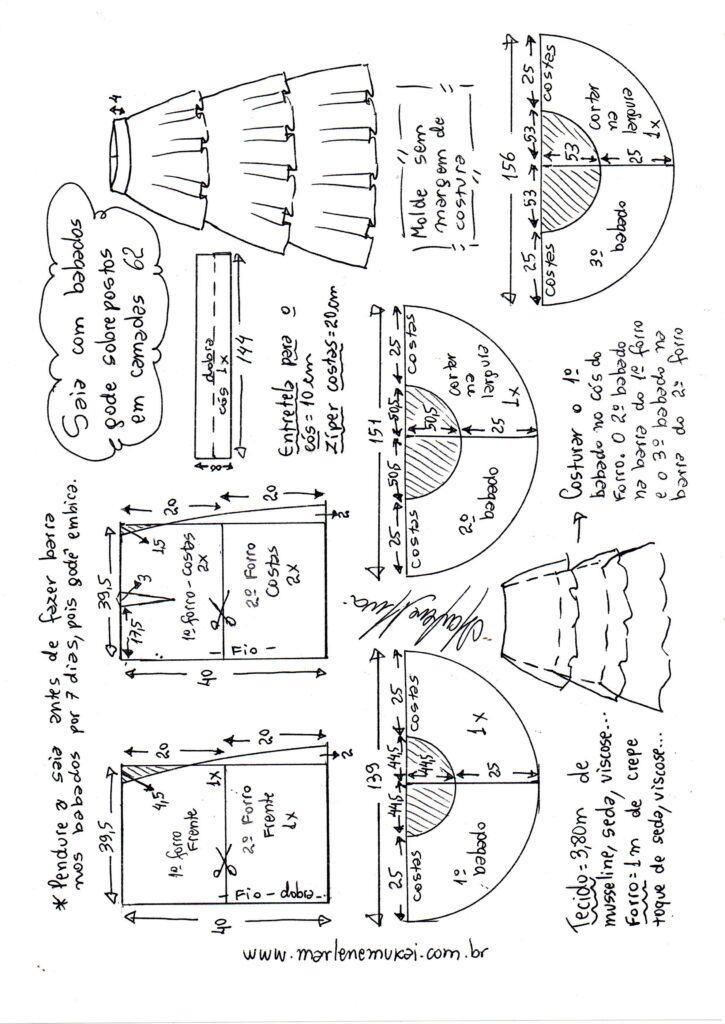 Saia com babados
gode sobrepostos
em camadas 62
4
* Pendure a saia antes de fazer barra
nos babados por 7 dias, pois godê embica.
dobra
cós 1x
8
144
Entretela para o
cós = 10 cm
zíper costas = 20 cm
Molde sem
margem de
costura
39,5
4,5
20
20
2
40
1º forro
Frente
1x
2º Forro
Frente
1x
Fio - dobra
39,5
17,5
3
1,5
20
20
2
40
1º forro - costas
2x
2º Forro
Costas
2x
Fio
139
25
44,5
44,5
25
costas
costas
44,5
25
1º
babado
1x
151
25
50,5
50,5
25
costas
costas
50,5
25
2º
babado
cortar
na
largura
1x
156
25
53
53
25
costas
costas
53
25
3º
babado
cortar
na
largura
1x
Tecido = 3,80m de
musseline, seda, viscose...
Forro = 1m de crepe
toque de seda, viscose...
Costurar o 1º
babado no cós do
Forro. O 2º babado
na barra do 1º forro
e o 3º babado na
barra do 2º forro
www.marlenemukai.com.br